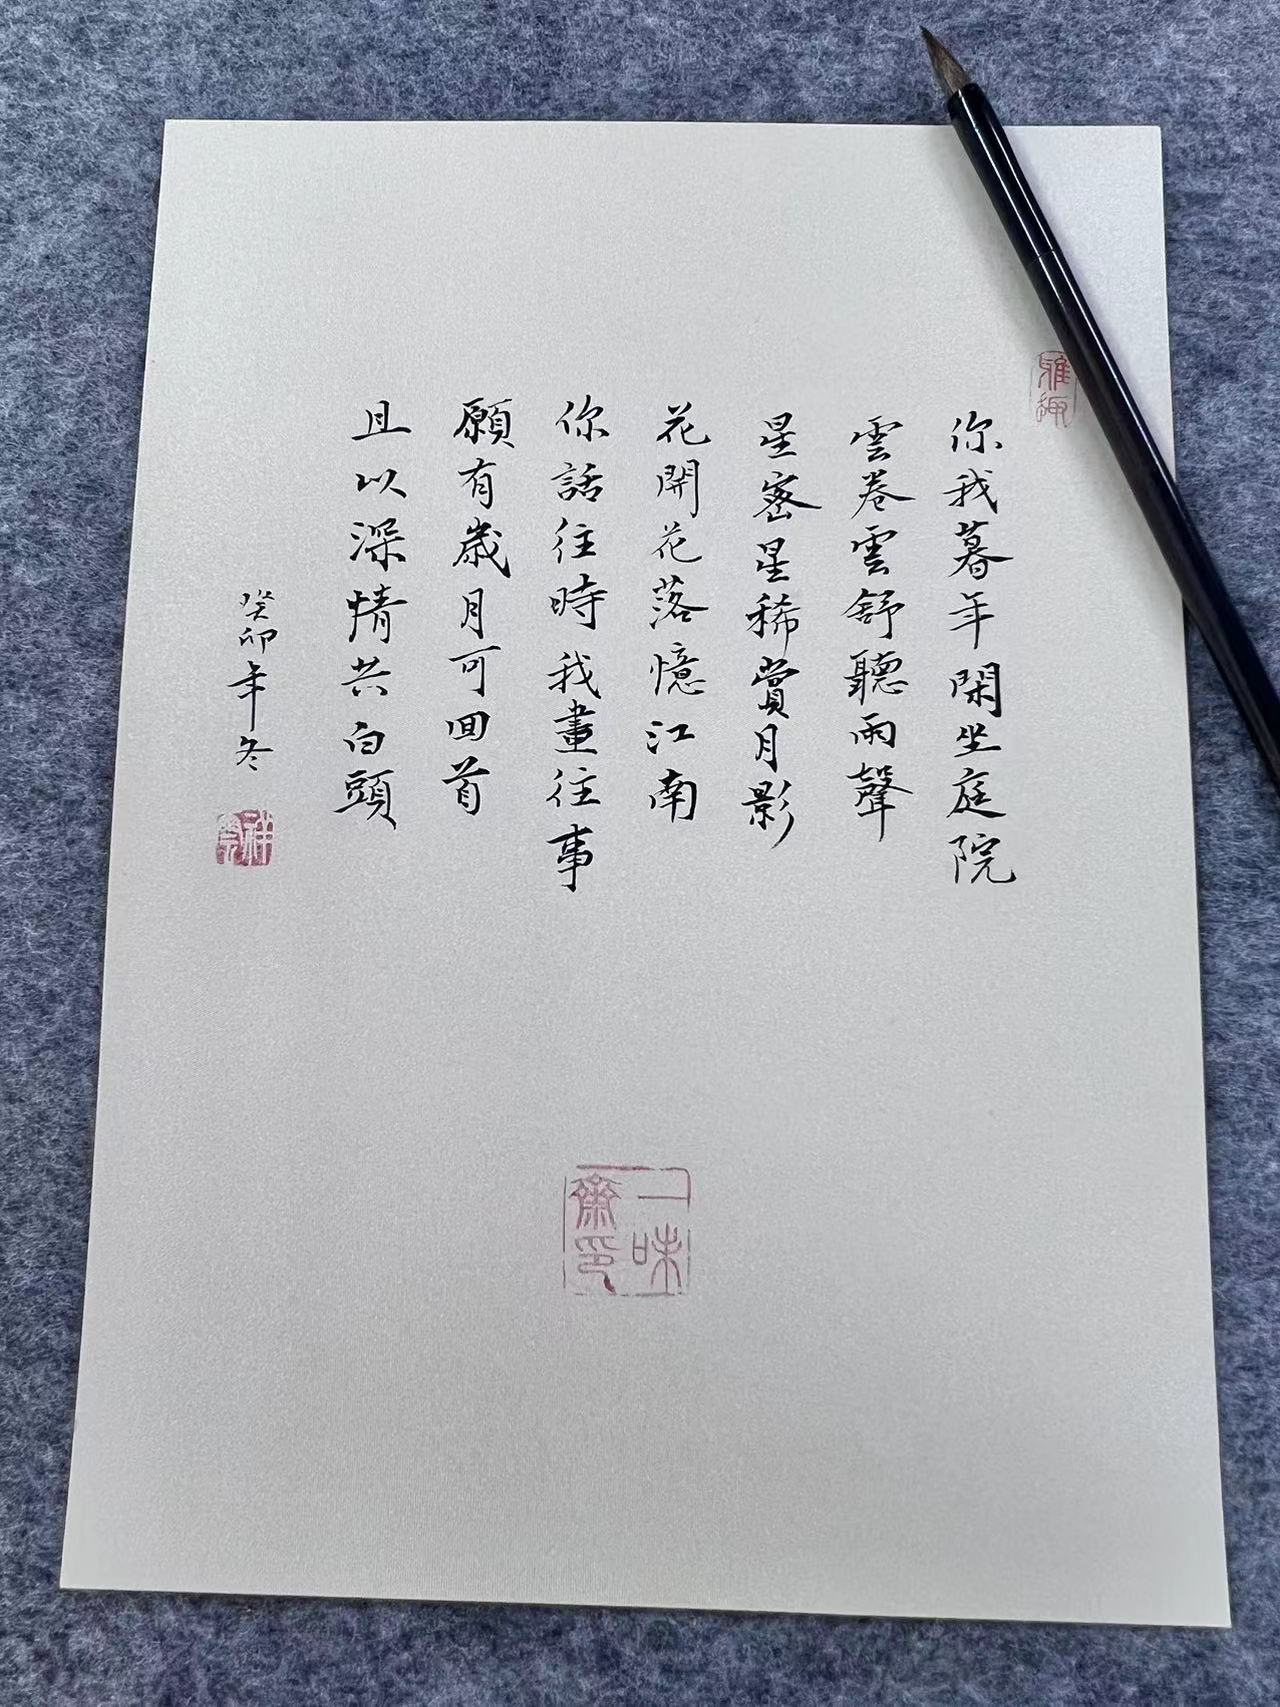 雅趣
你我暮年閑坐庭院
雲卷雲舒聽雨聲
星密星稀賞月影
花開花落憶江南
你話往時我畫往事
願有歲月可回首
且以深情共白頭
癸卯年冬
一味
齋印